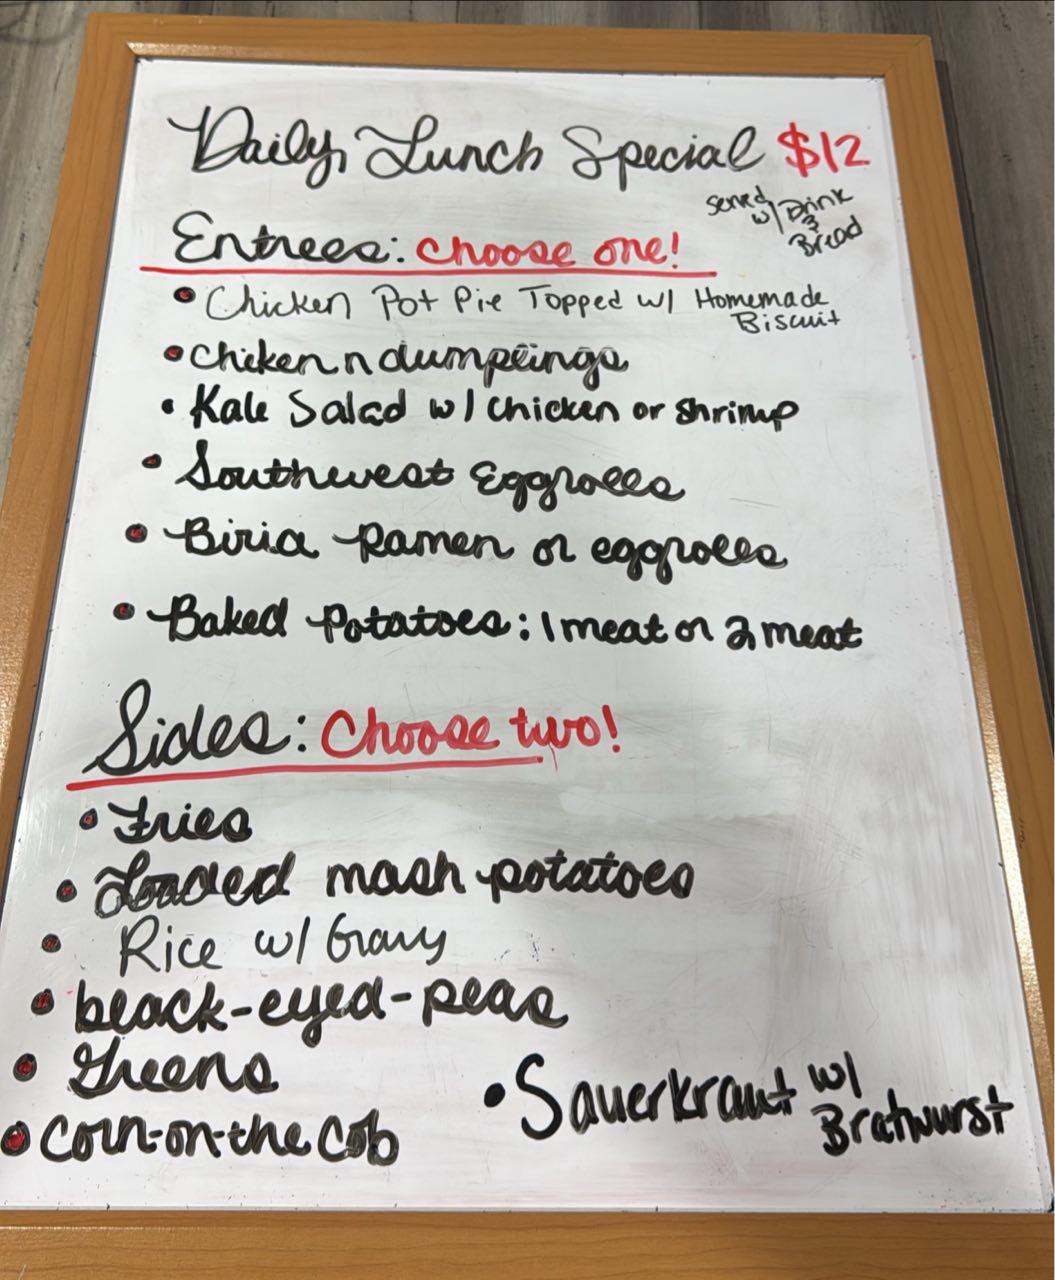 Daily Lunch Special $12
served w/ Drink & Bread
Entrees: Choose one!
• Chicken Pot Pie Topped w/ Homemade
Biscuit
• Chicken n dumplings
• Kale Salad w/ chicken or shrimp
• Southwest Eggrolls
• Biria Ramen or eggrolls
• Baked Potatoes: 1 meat or 2 meat
Sides: Choose two!
• Fries
• Loaded mash potatoes
• Rice w/ Gravy
• black-eyed-peas
• Greens
• Corn-on-the Cob
• Sauerkraut w/
Bratwurst